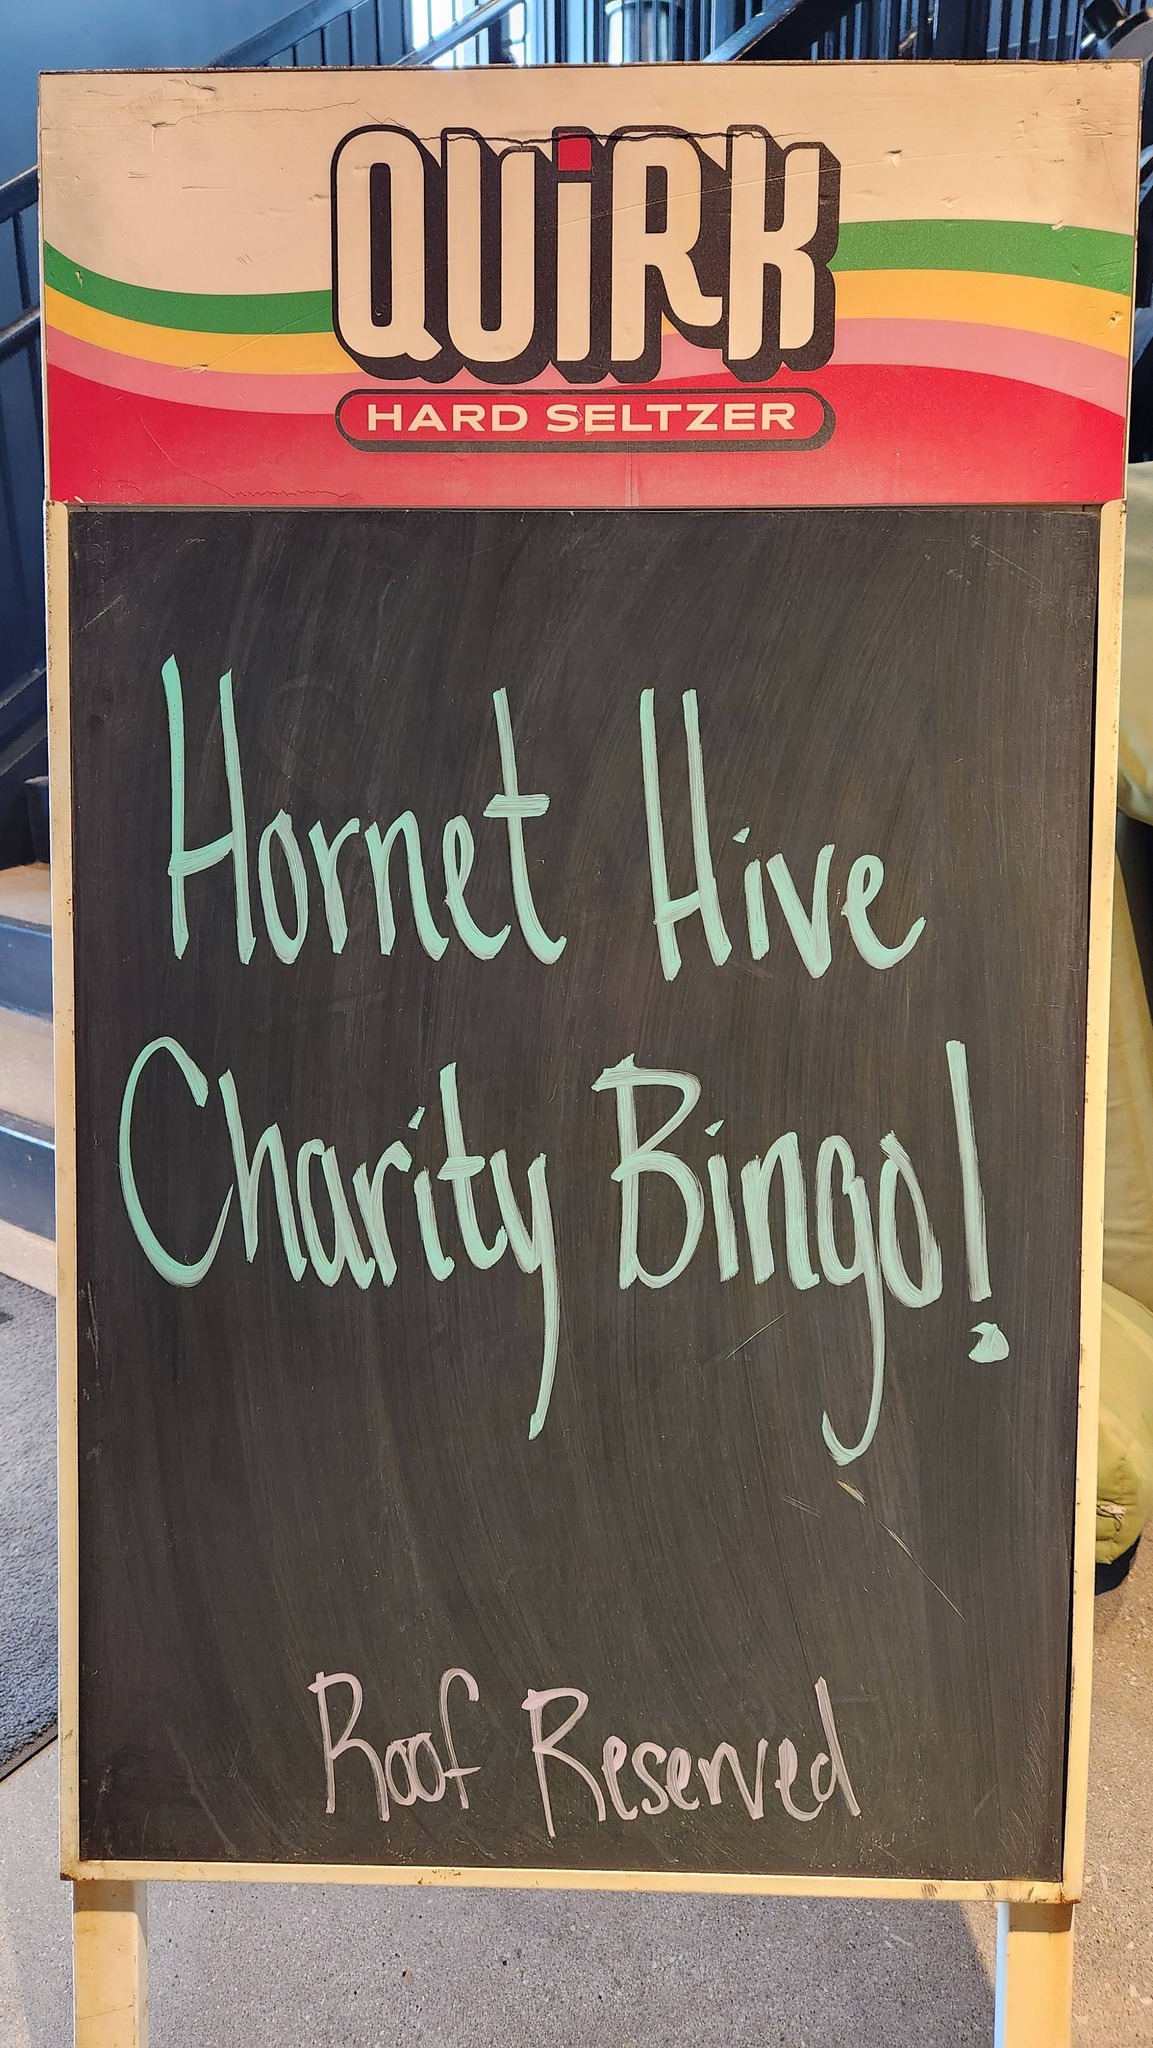 QUiRK
HARD SELTZER
Hornet Hive
Charity Bingo!
Roof Reserved